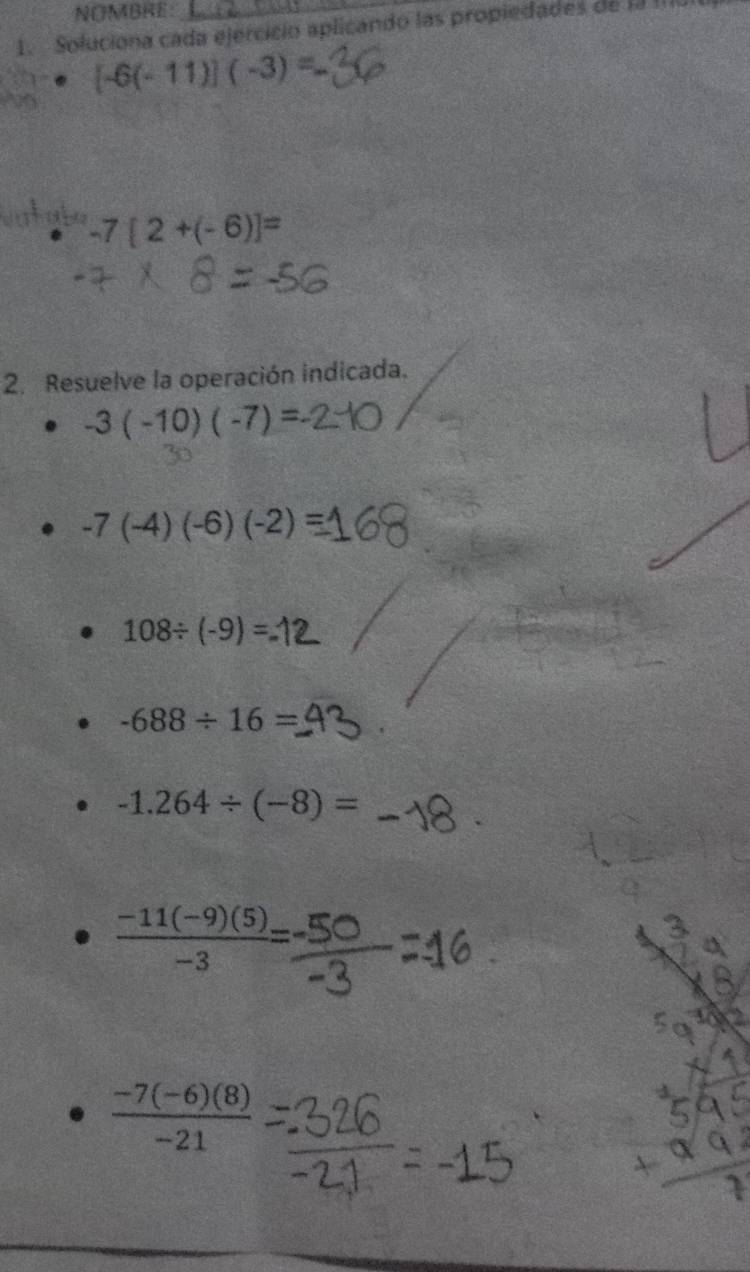 NOMBRE:
1. Soluciona cada ejercicio aplicando las propiedades de la
• [-6(- 11)] ( -3) =-36
• -7 [ 2 +(- 6)]=
-7 x 8 = -56
2. Resuelve la operación indicada.
• -3 ( -10) ( -7) =-210
30
• -7 (-4) (-6) (-2) =-168
• 108÷ (-9) =-12
• -688 ÷ 16 =-43.
• -1.264 ÷ (−8) = -18.
• −11(−9)(5) = -50 = -16.
−3 -3
• −7(−6)(8) = -326 = -15
−21 -21